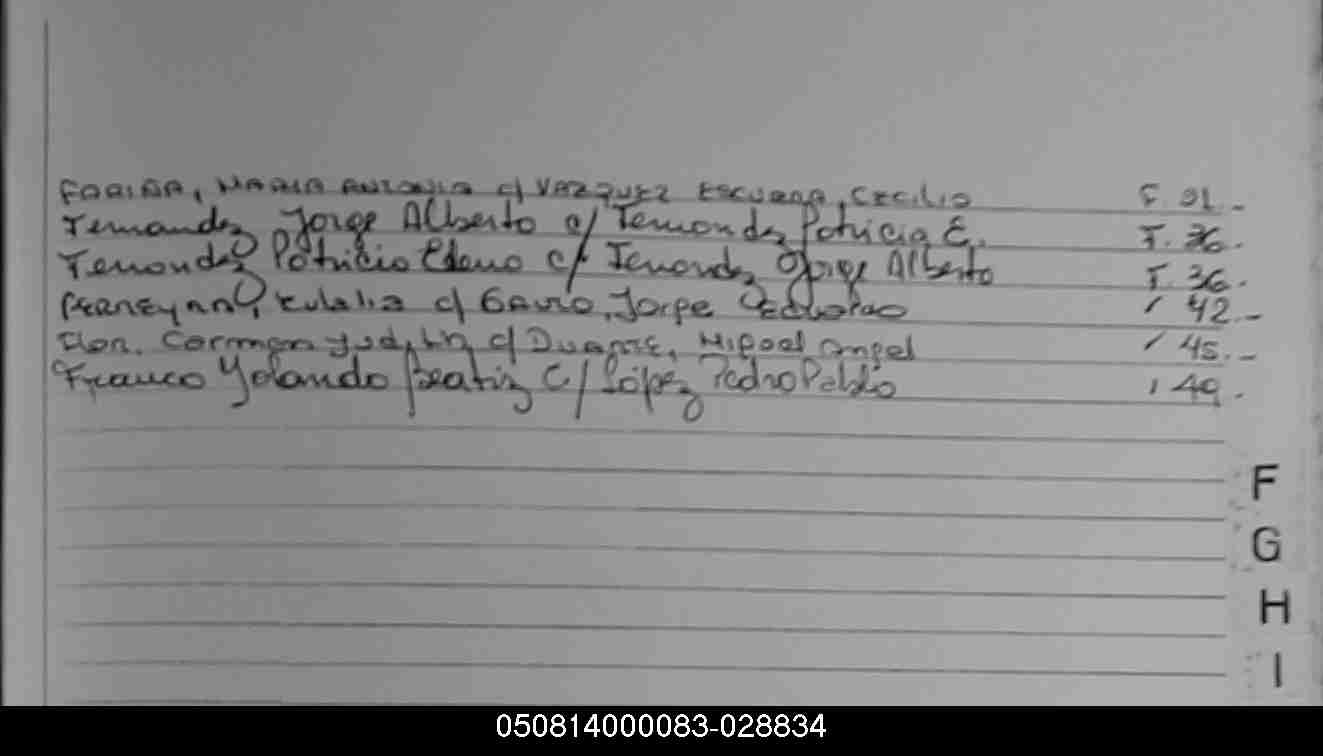 FARIÑA, MARIA ANTONIA c/ VAZQUEZ ESCURRA, Cecilio F 01.-
Fernandez Jorge Alberto c/ Fernandez Patricia E. F. 36.-
Fernandez Patricia Elena c/ Fernandez Jorge Alberto F. 36.-
Eulalia c/ Gauto, Jorge / 42.-
Carmen Judith c/ Duarte, Miguel Angel / 45.-
Franco Yolanda Beatriz c/ López Pedro Pablo / 49.
F
G
H
I
050814000083-028834